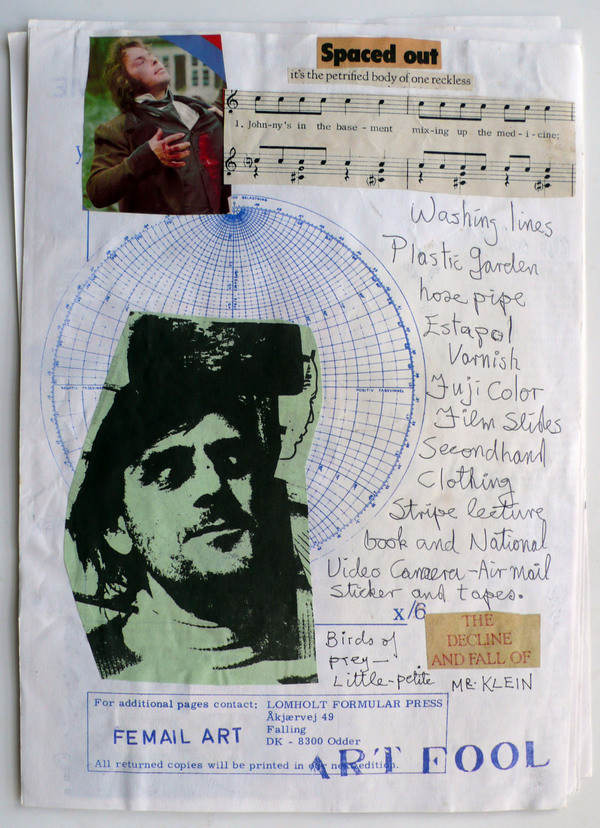 Spaced out
it's the petrified body of one reckless
1. John-ny's in the base - ment mix-ing up the med - i - cine;
Washing lines
Plastic garden
hose pipe
Estapol
Varnish
Fuji Color
Film Slides
Secondhand
Clothing
Stripe lecture
book and National
Video Camera-Air mail
Sticker and tapes.
x/6
THE
DECLINE
AND FALL OF
MR. KLEIN
Birds of
prey—
Little-petite
For additional pages contact: LOMHOLT FORMULAR PRESS
Åkjærvej 49
Falling
DK - 8300 Odder
FEMAIL ART
All returned copies will be printed in our next edition.
ART FOOL